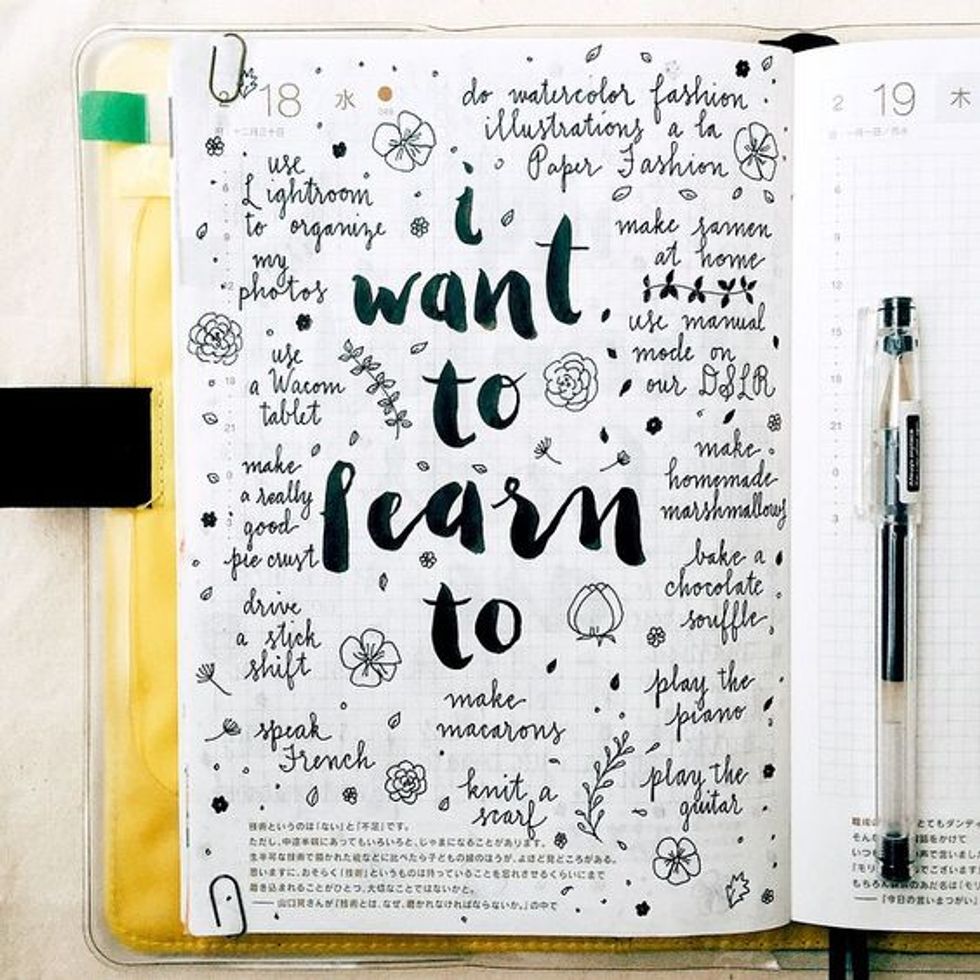 18 水
do watercolor fashion
illustrations a la
Paper Fashion
use
Lightroom
to organize
my
photos
i
want
to
learn
to
make ramen
at home
use manual
mode on
our DSLR
use
a Wacom
tablet
make
homemade
marshmallows
make
a really
good
pie crust
bake a
chocolate
souffle
drive
a stick
shift
play the
piano
make
macarons
speak
French
knit a
scarf
play the
guitar
技術というのは「ない」と「不足」です。
ただし、中途半端にあってもいろいろと、じゃまになることがあります。
生半可な技術で描かれた絵などに比べたら子どもの絵のほうが、よほど見どころがある。
思いますに、おそらく「技術」というものは持っていることを忘れさせるくらいにまで
磨き込まれることがひとつ、大切なことではないかと。
2 19 木
6
9
12
15
18
21
0
3